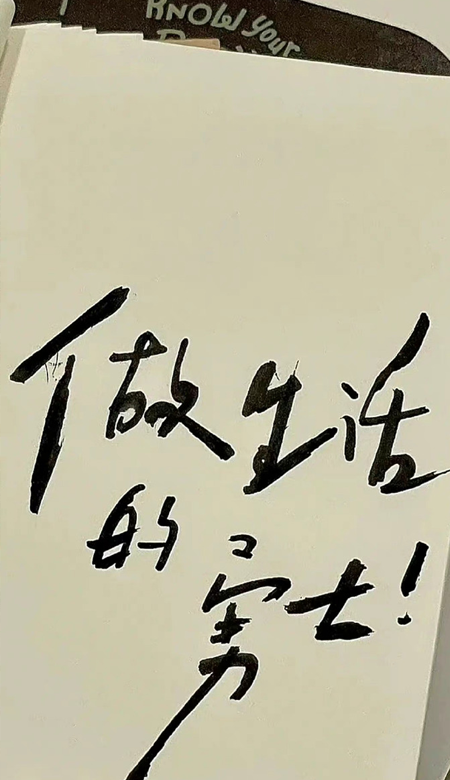 KNOW YOUR
做生活
的勇士!